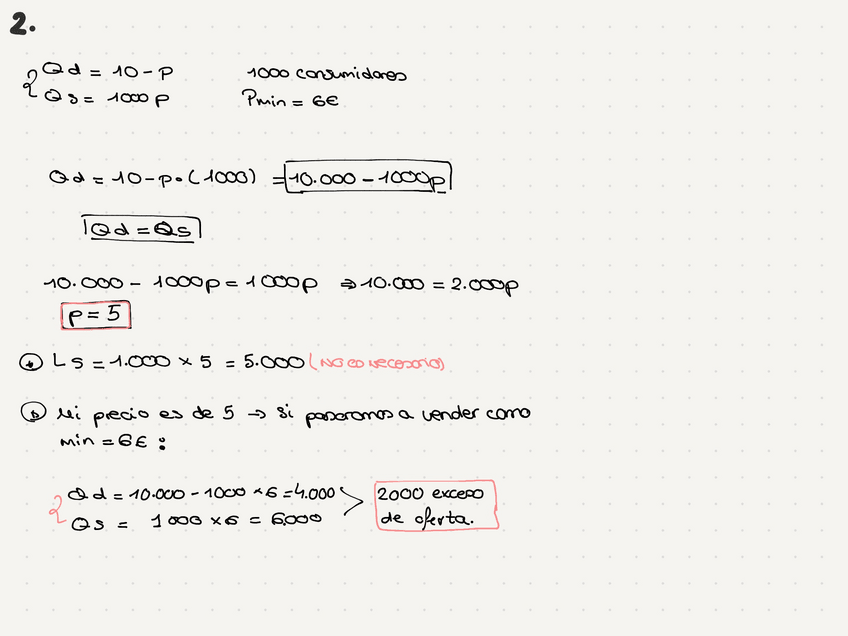 2.
Qd = 10 - P 1000 consumidores
Qs = 1000 P Pmin = 6€
Qd = 10 - p • (1000) = 10.000 - 1000p
Qd = Qs
10.000 - 1000p = 1000p ⇒ 10.000 = 2.000p
p = 5
Ls = 1.000 × 5 = 5.000 (no es necesario)
b Mi precio es de 5 → Si pasaramos a vender como
min = 6€ :
Qd = 10.000 - 1000 × 6 = 4.000 2000 exceso
Qs = 1000 × 6 = 6.000 de oferta.